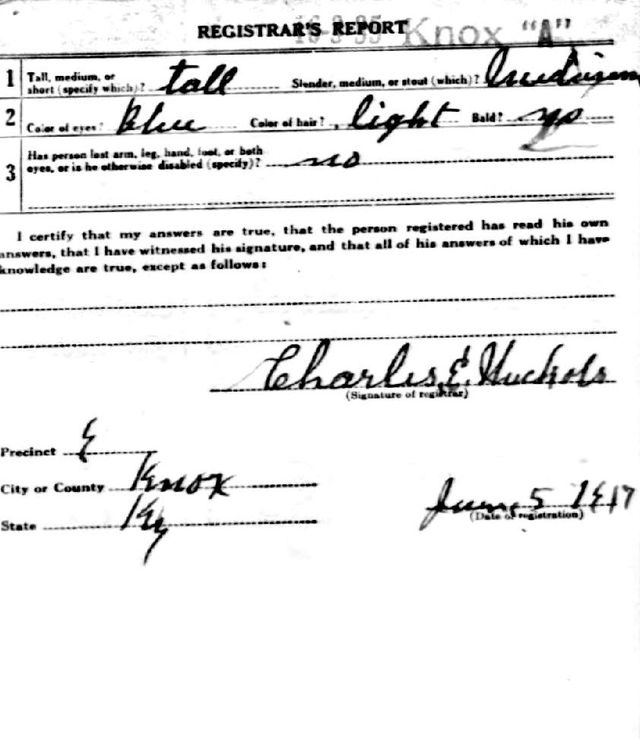 REGISTRAR'S REPORT 16-3-35 Knox "A"
1 Tall, medium, or short (specify which)? tall Slender, medium, or stout (which)? medium
2 Color of eyes? Blue Color of hair? light Bald? no
3 Has person lost arm, leg, hand, foot, or both eyes, or is he otherwise disabled (specify)? no
I certify that my answers are true, that the person registered has read his own
answers, that I have witnessed his signature, and that all of his answers of which I have
knowledge are true, except as follows:
Charles E. Nuckols
(Signature of registrar)
Precinct E
City or County Knox
State Ky
June 5 1917
(Date of registration)